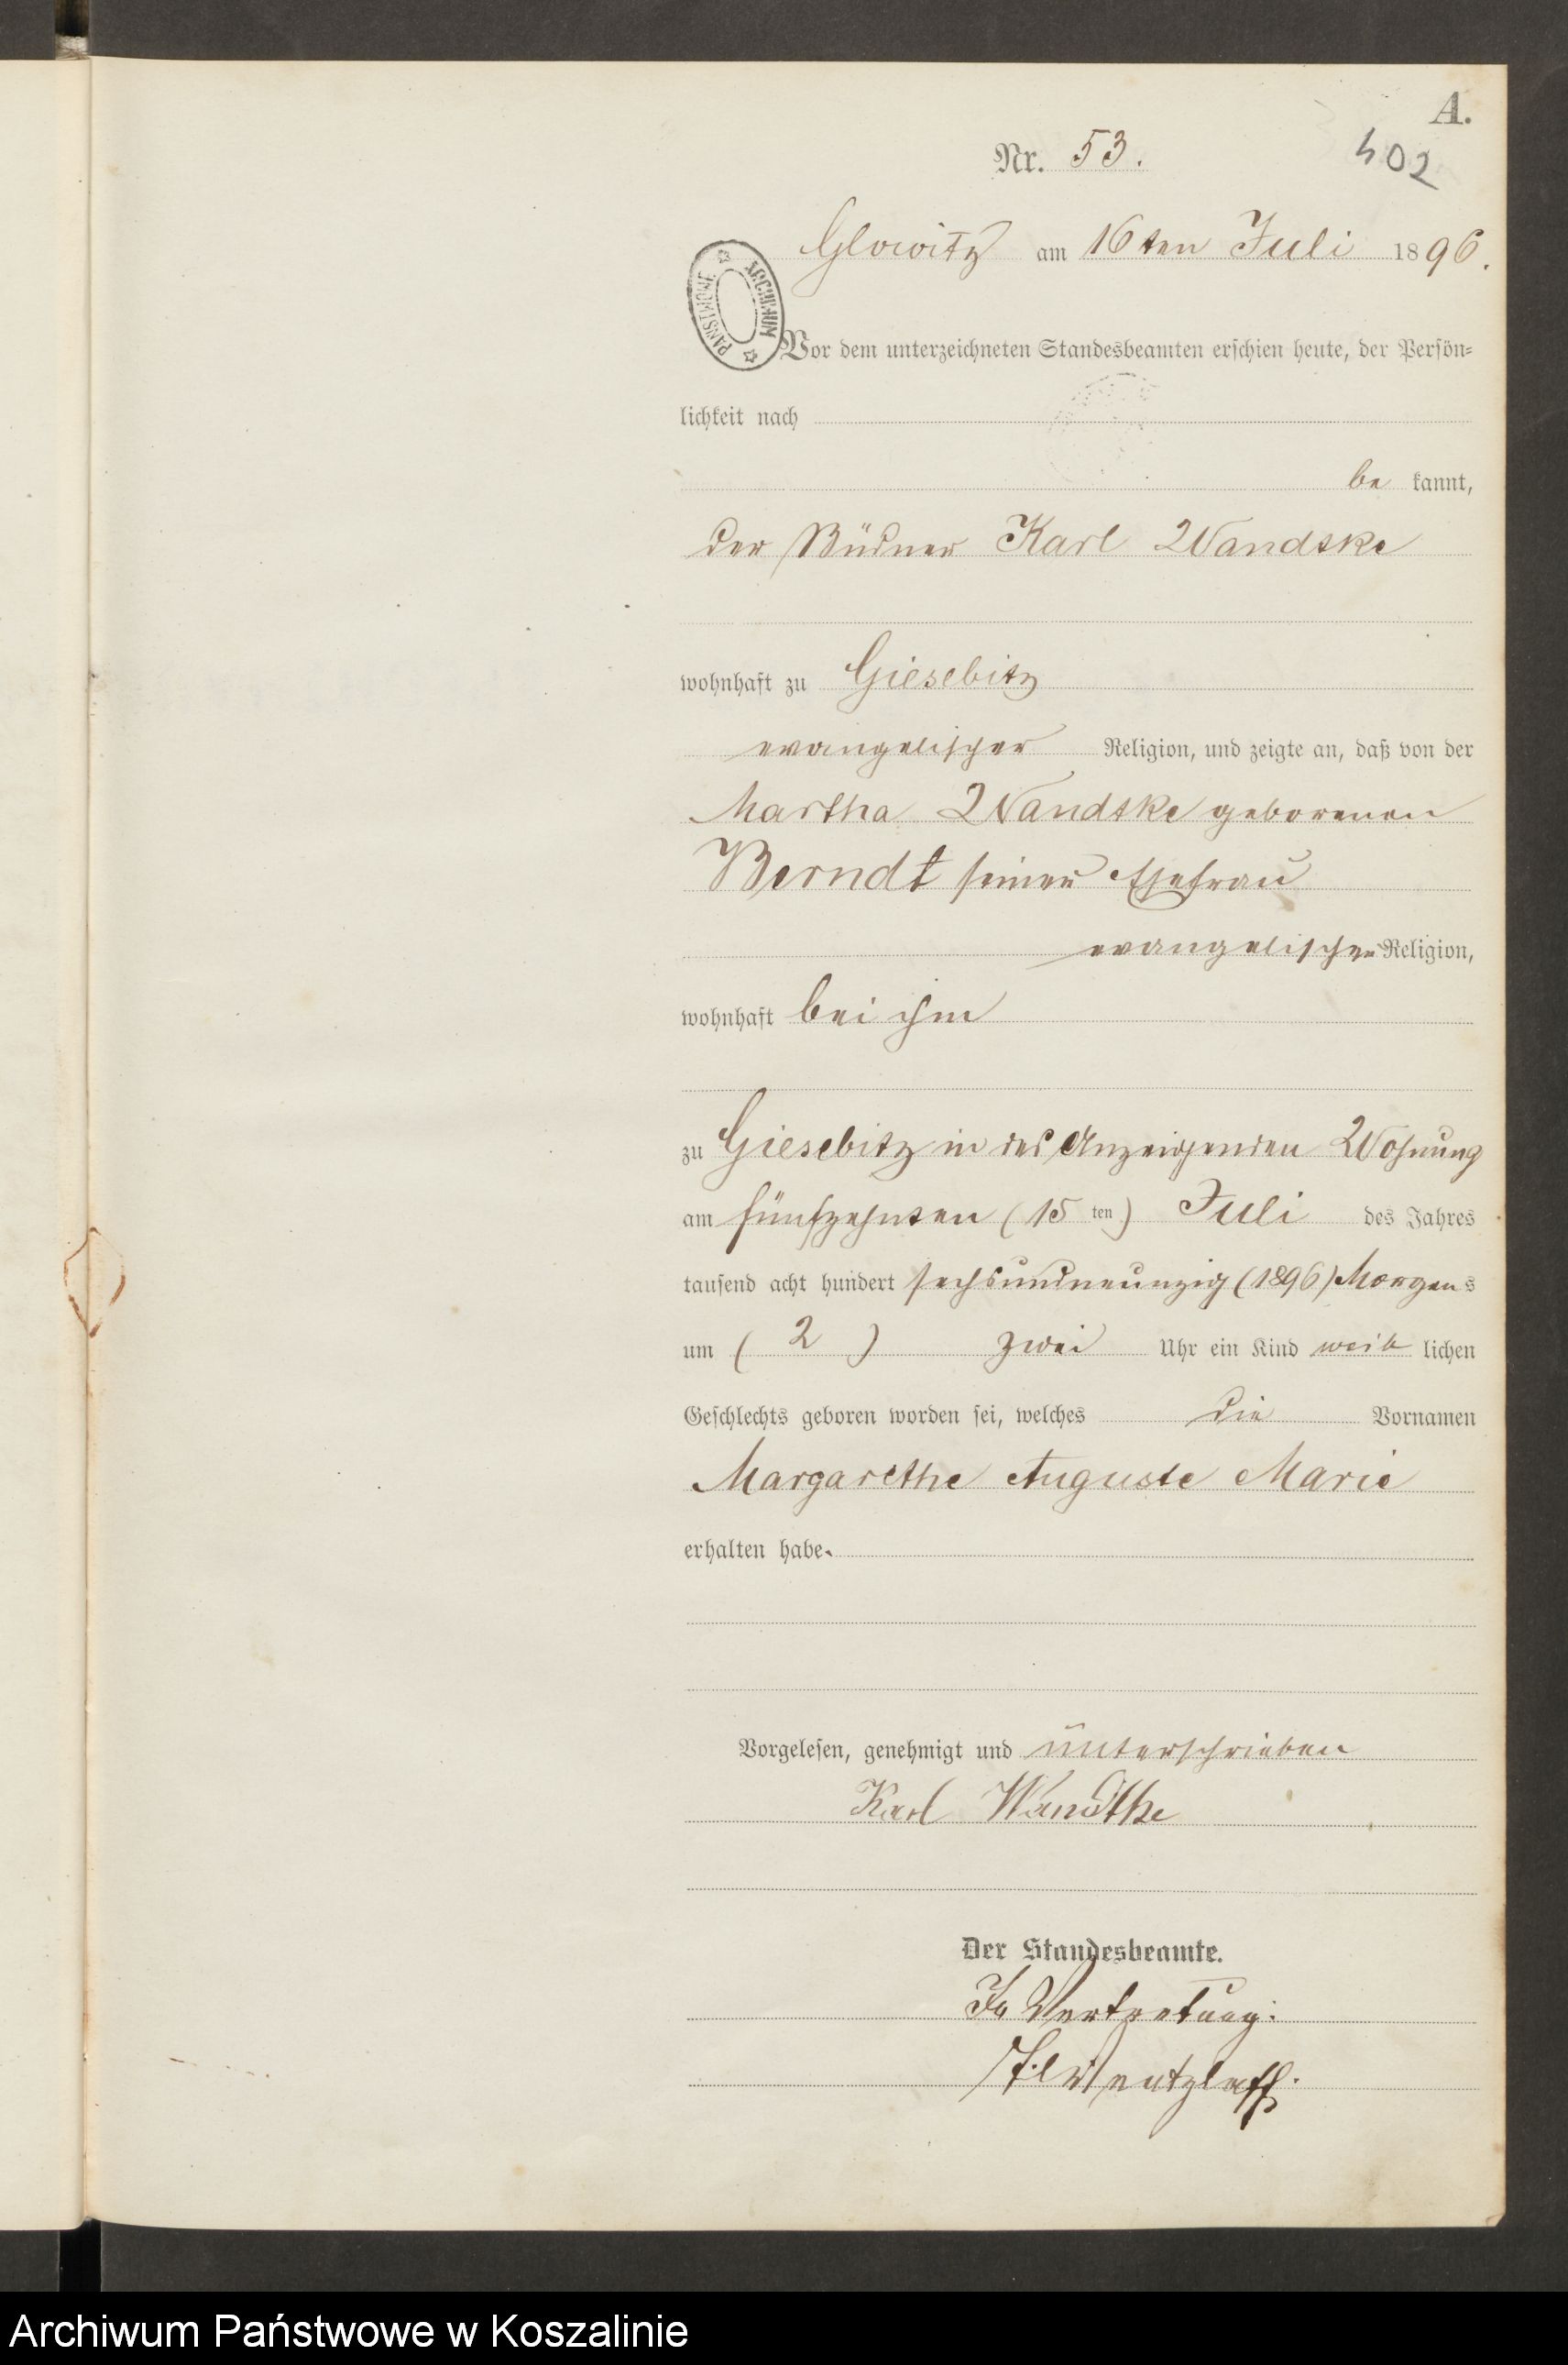 A.
Nr. 53.
402
Glowitz am 16ten Juli 1896.
ARCHIWUM PAŃSTWOWE
Vor dem unterzeichneten Standesbeamten erschien heute, der Persön-
lichkeit nach
be kannt,
der Büdner Karl Wandtke
wohnhaft zu Giesebitz
evangelischer Religion, und zeigte an, daß von der
Martha Wandtke geborenen
Berndt seiner Ehefrau
evangelischer Religion,
wohnhaft bei ihm
zu Giesebitz in des Anzeigenden Wohnung
am fünfzehnten (15 ten) Juli des Jahres
tausend acht hundert sechsundneunzig (1896) Morgens
um ( 2 ) zwei Uhr ein Kind weib lichen
Geschlechts geboren worden sei, welches die Vornamen
Margarethe Auguste Marie
erhalten habe.
Vorgelesen, genehmigt und unterschrieben
Karl Wandtke
Der Standesbeamte.
In Vertretung:
Wentzlaff.
Archiwum Państwowe w Koszalinie